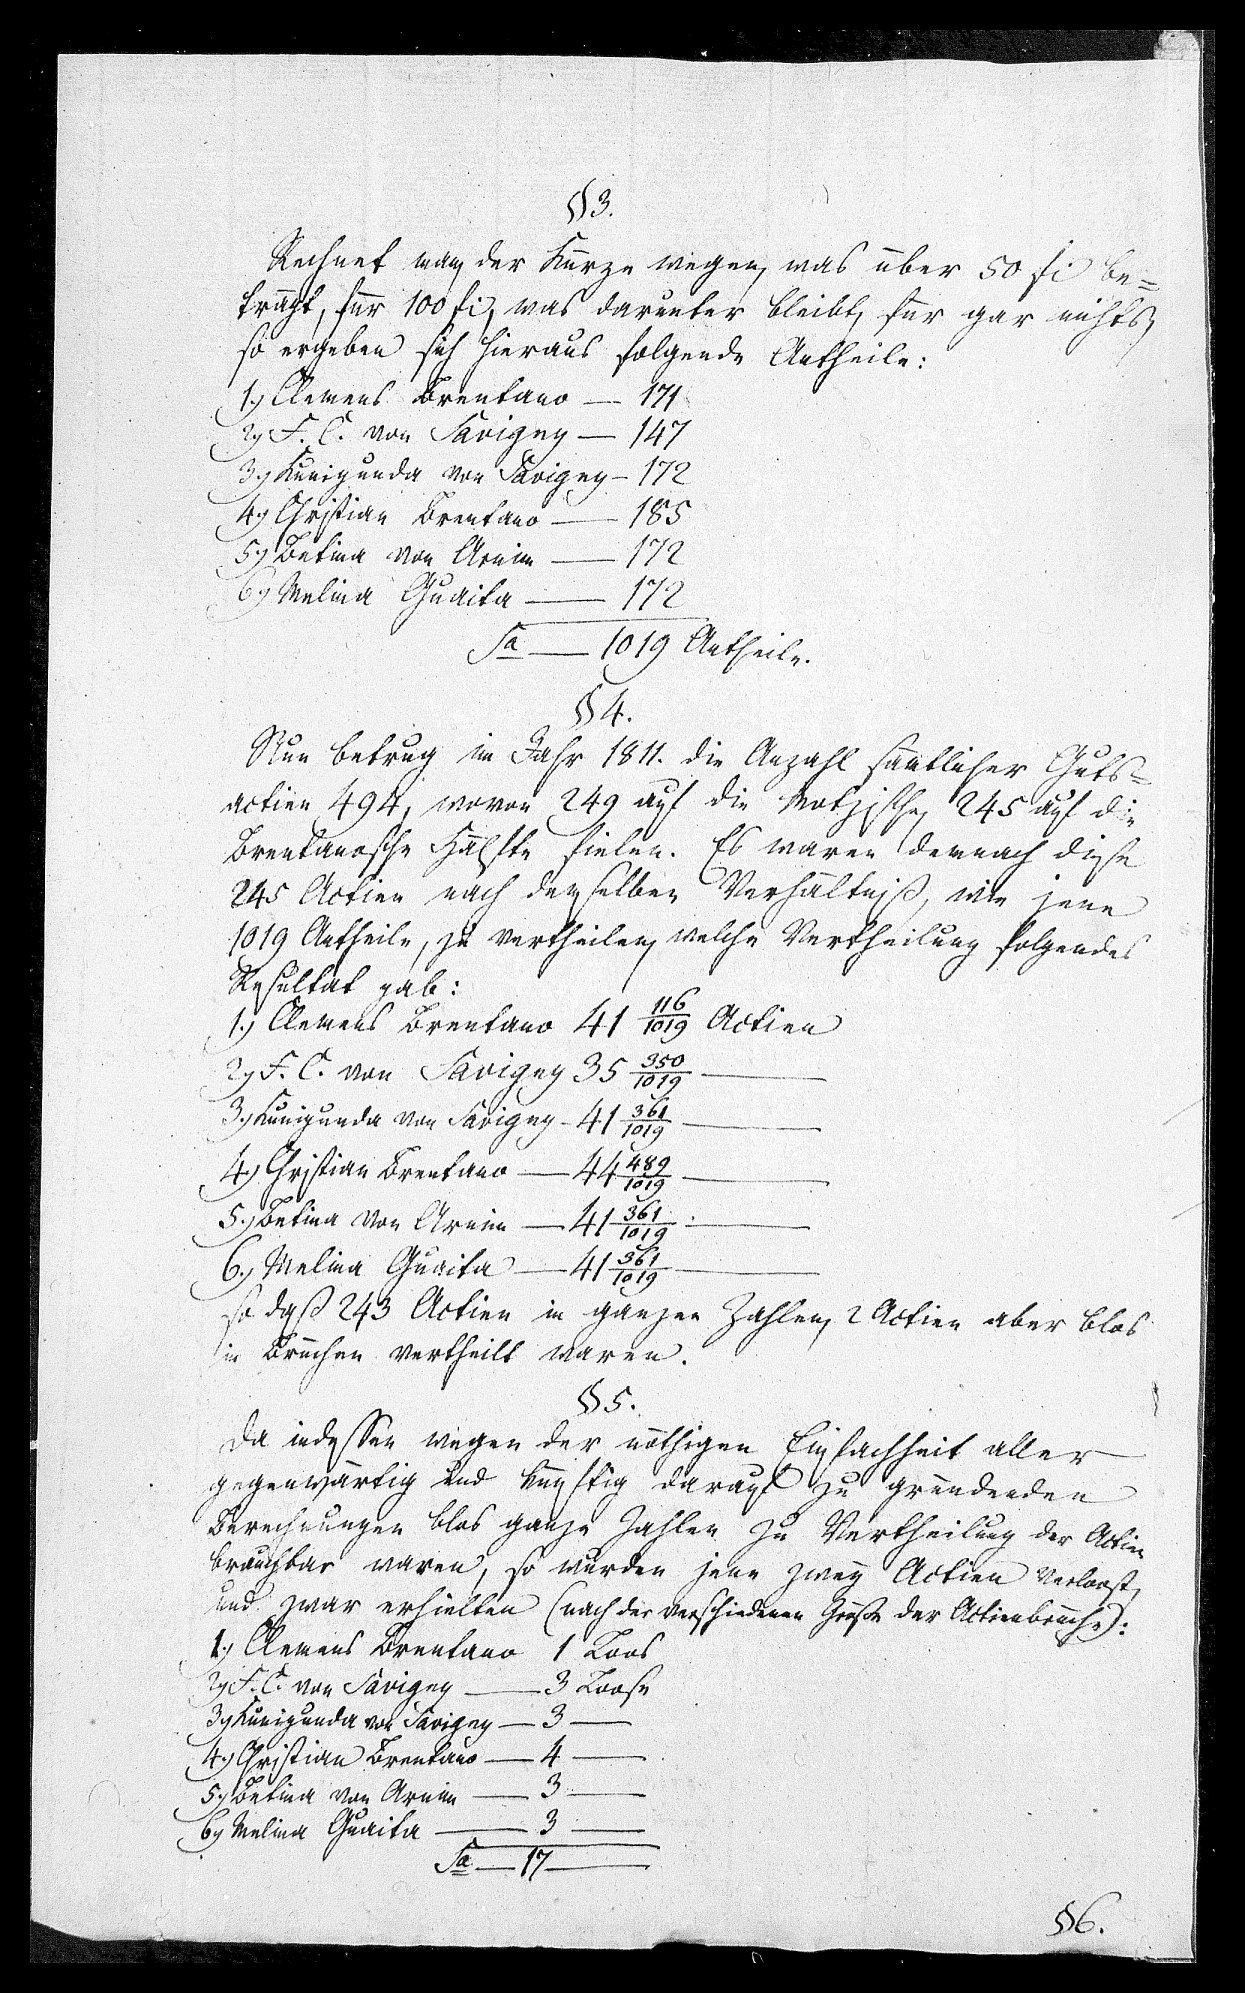 §3.
Rechnet man der Kürze wegen, was über 50 fl be=
trägt, für 100 fl, was darunter bleibt, für gar nichts,
so ergeben sich hieraus folgende Antheile:
1.) Clemens Brentano — 171
2.) F. C. von Savigny — 147
3.) Kunigunda von Savigny — 172
4.) Christian Brentano — 185
5.) Betina von Arnim — 172
6.) Melina Guaita — 172
Sa — 1019 Antheile.
§4.
Nun betrug im Jahr 1811. die Anzahl säntlicher Guts=
actien 494, wovon 249 auf die 245 auf die
Brentanosche Hälfte fielen. Es waren demnach diese
245 Actien nach demselben Verhältniß, wie jene
1019 Antheile, zu vertheilen, welche Vertheilung folgendes
Resultat gab:
1.) Clemens Brentano 41 116/1019 Actien
2.) F. C. von Savigny 35 350/1019 —
3.) Kunigunda von Savigny - 41 361/1019 —
4.) Christian Brentano — 44 489/1019 —
5.) Betina von Arnim — 41 361/1019 —
6.) Melina Guaita — 41 361/1019 —
so daß 243 Actien in ganzen Zahlen, 2 Actien aber blos
in Brüchen vertheilt waren.
§5.
Da indessen wegen der nöthigen Einfachheit aller
gegenwärtig und künftig darauf zu gründenden
Berechnungen blos ganze Zahlen zu Vertheilung der Actien
brauchbar waren, so wurden jene zwey Actien verloost,
und zwar erhielten (nach der verschiedenen Größe der Actienbrüche):
1.) Clemens Brentano 1 Loos
2.) F. C. von Savigny — 3 Loose
3.) Kunigunda von Savigny — 3 —
4.) Christian Brentano — 4 —
5.) Betina von Arnim — 3 —
6.) Melina Guaita — 3 —
Sa — 17 —
§6.